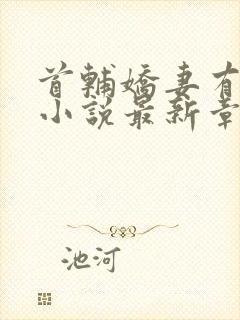 首輔嬌妻有
小說最新章
池河